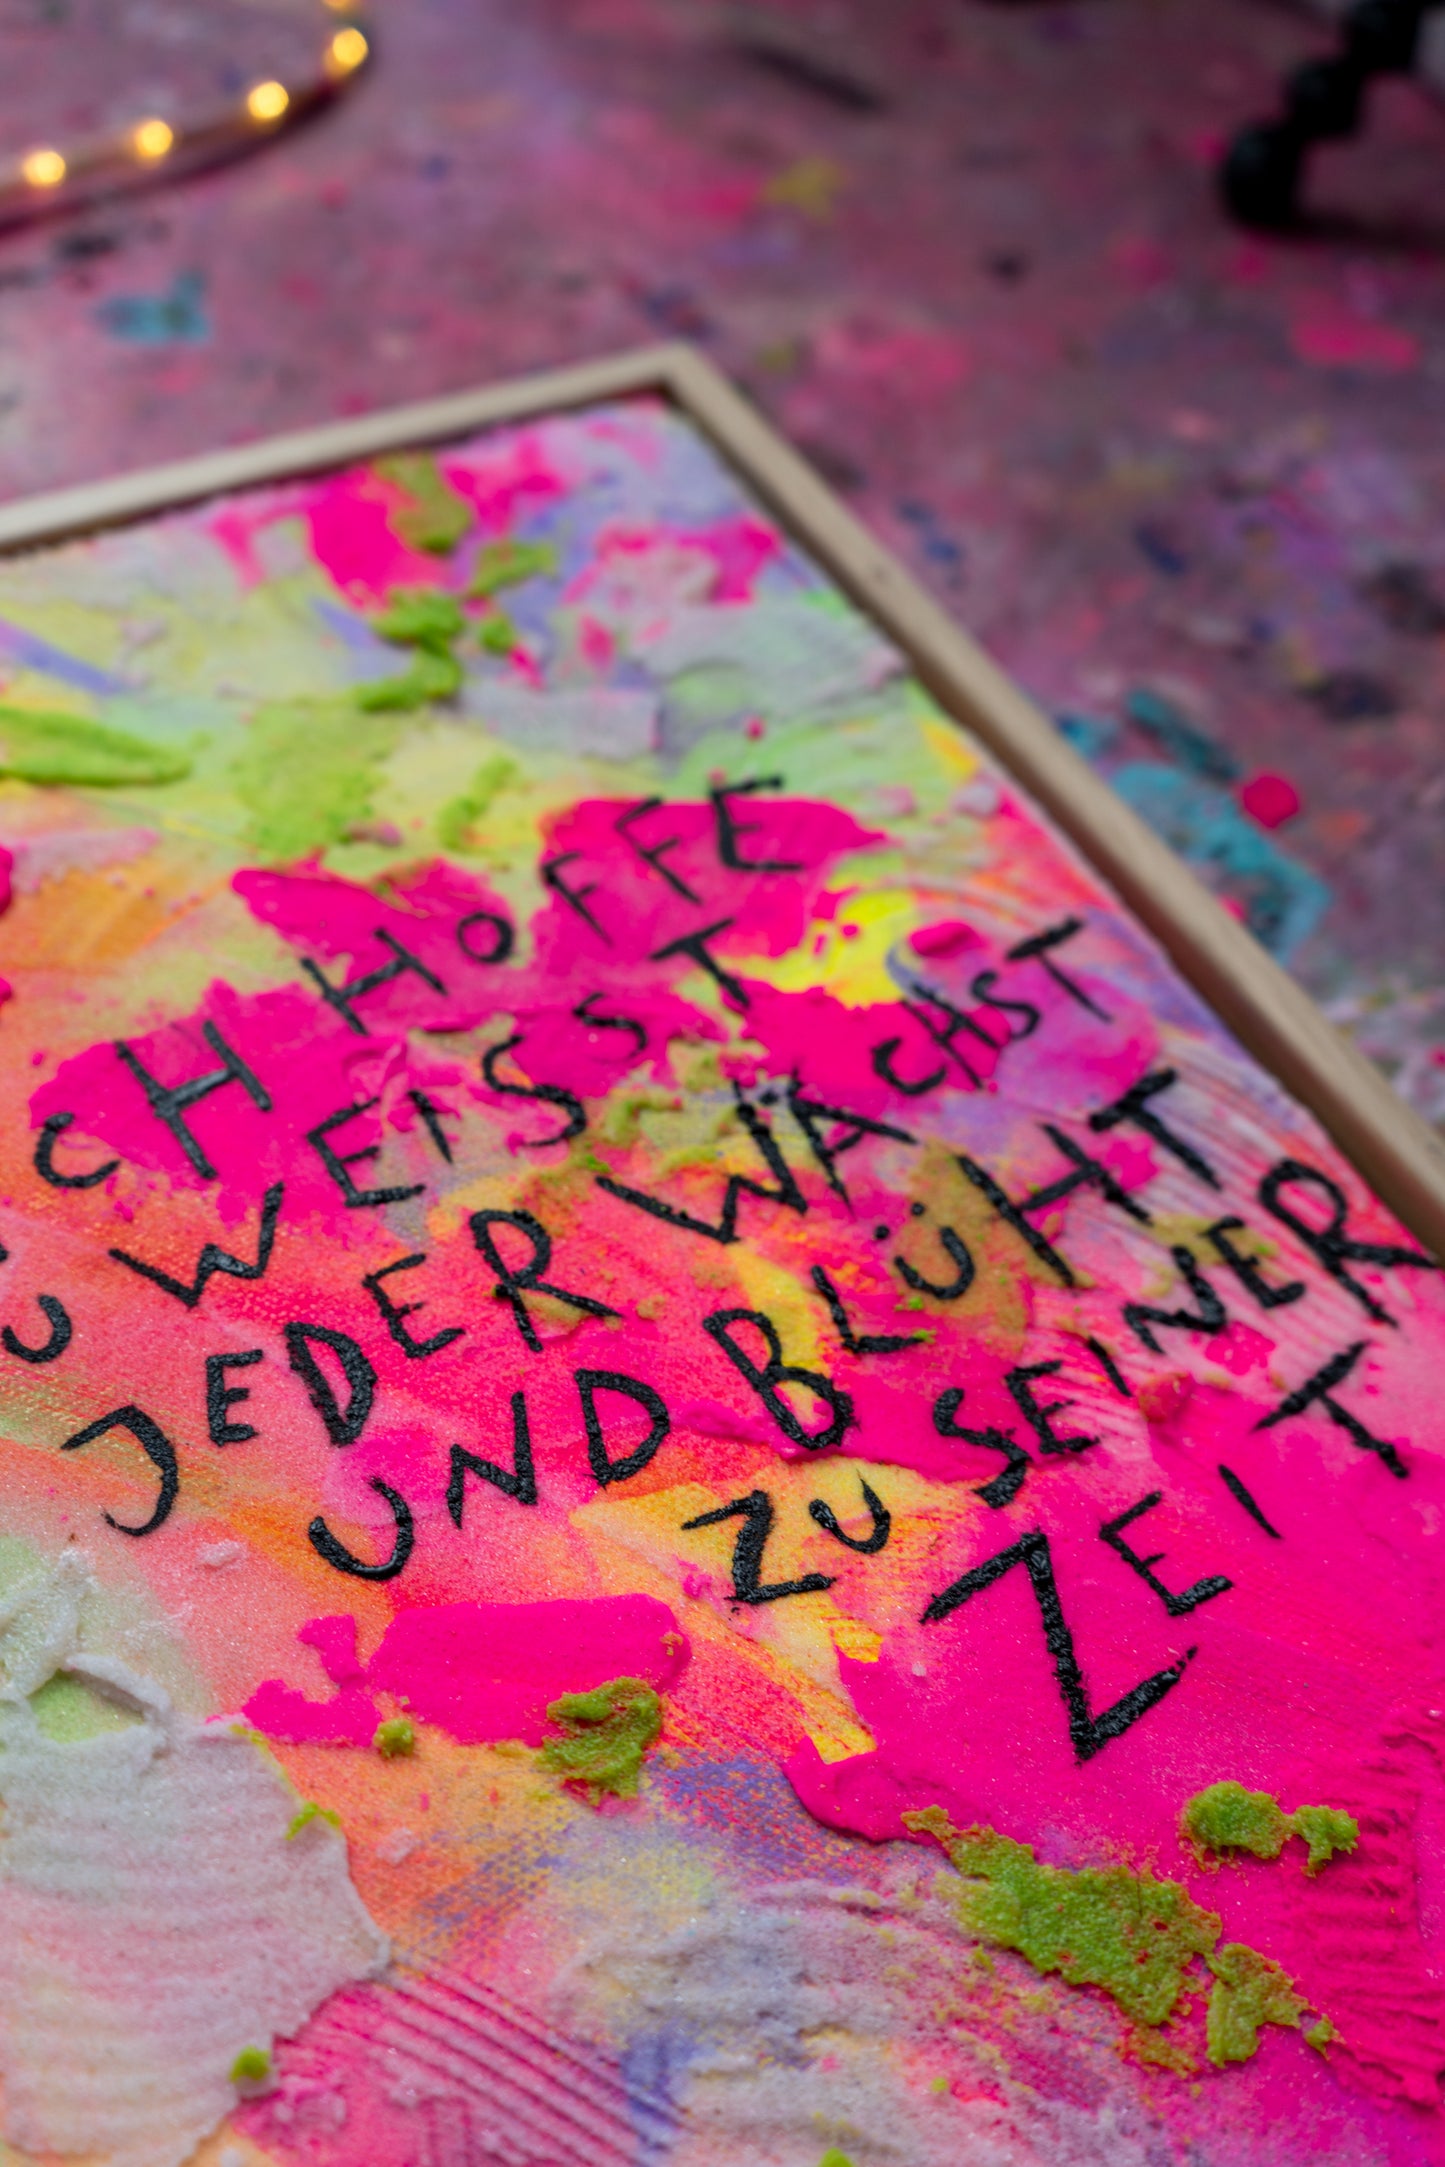 CH HOFFE
U WEISST
JEDER WÄCHST
UND BLÜHT
ZU SEINER
ZEIT